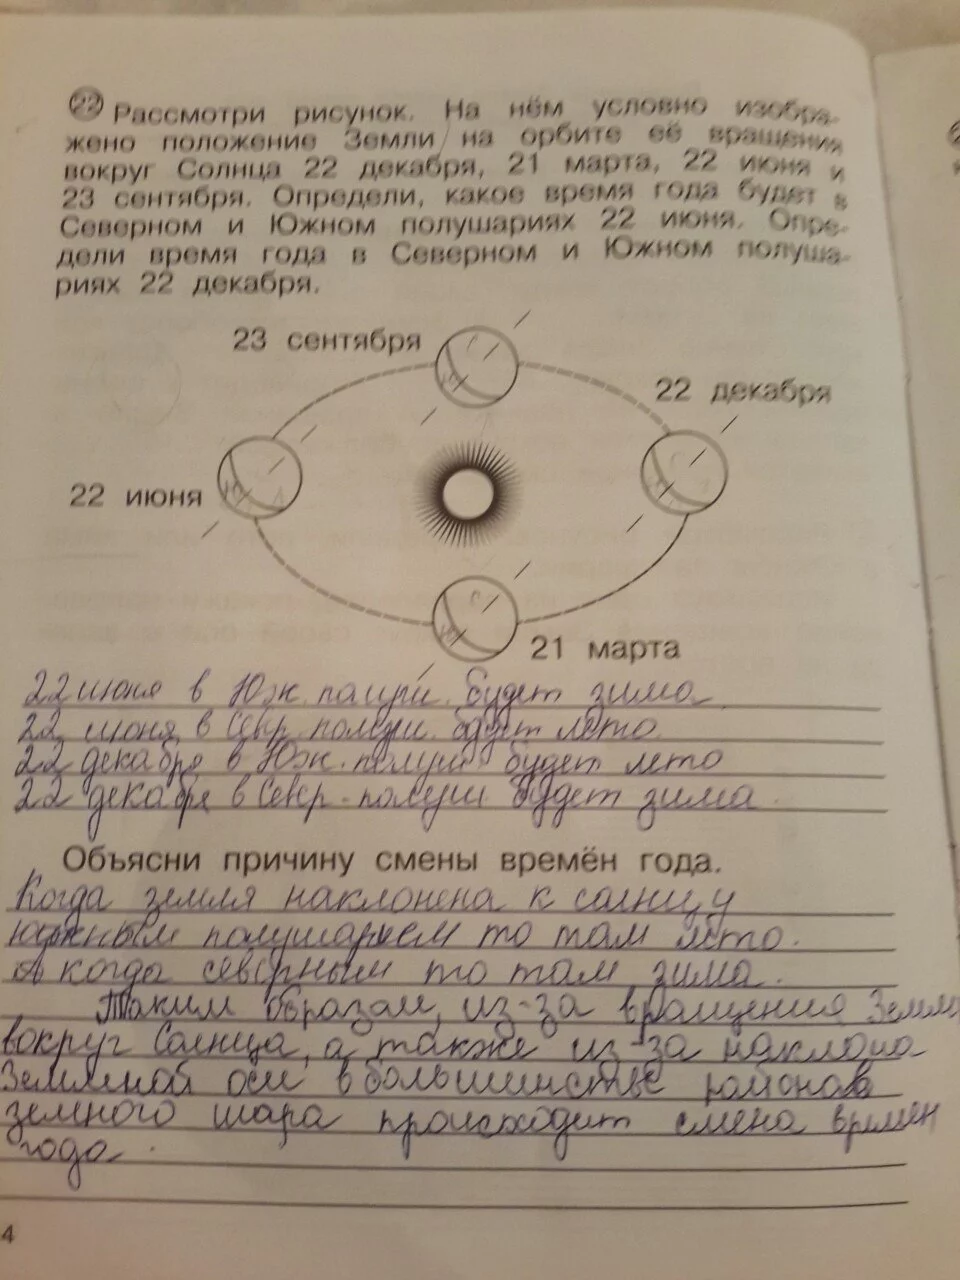 22 Рассмотри рисунок. На нём условно изобра-
жено положение Земли на орбите её вращения
вокруг Солнца 22 декабря, 21 марта, 22 июня и
23 сентября. Определи, какое время года будет в
Северном и Южном полушариях 22 июня. Опре-
дели время года в Северном и Южном полуша-
риях 22 декабря.
23 сентября
22 декабря
22 июня
21 марта
С
Ю
22 июня в Юж. полуш. будет зима
22 июня в Севр. полуш. будет лето
22 декабря в Юж. полуш будет лето
22 декабря в Севр. полуш будет зима.
Объясни причину смены времён года.
Когда земля наклонена к солнцу
южным полушарием то там лето.
А когда северным то там зима.
Таким образам, из-за вращения Земли
вокруг Солнца, а также из-за наклона
Земмной оси в большинстве районов
земного шара происходит смена времен
года.
4